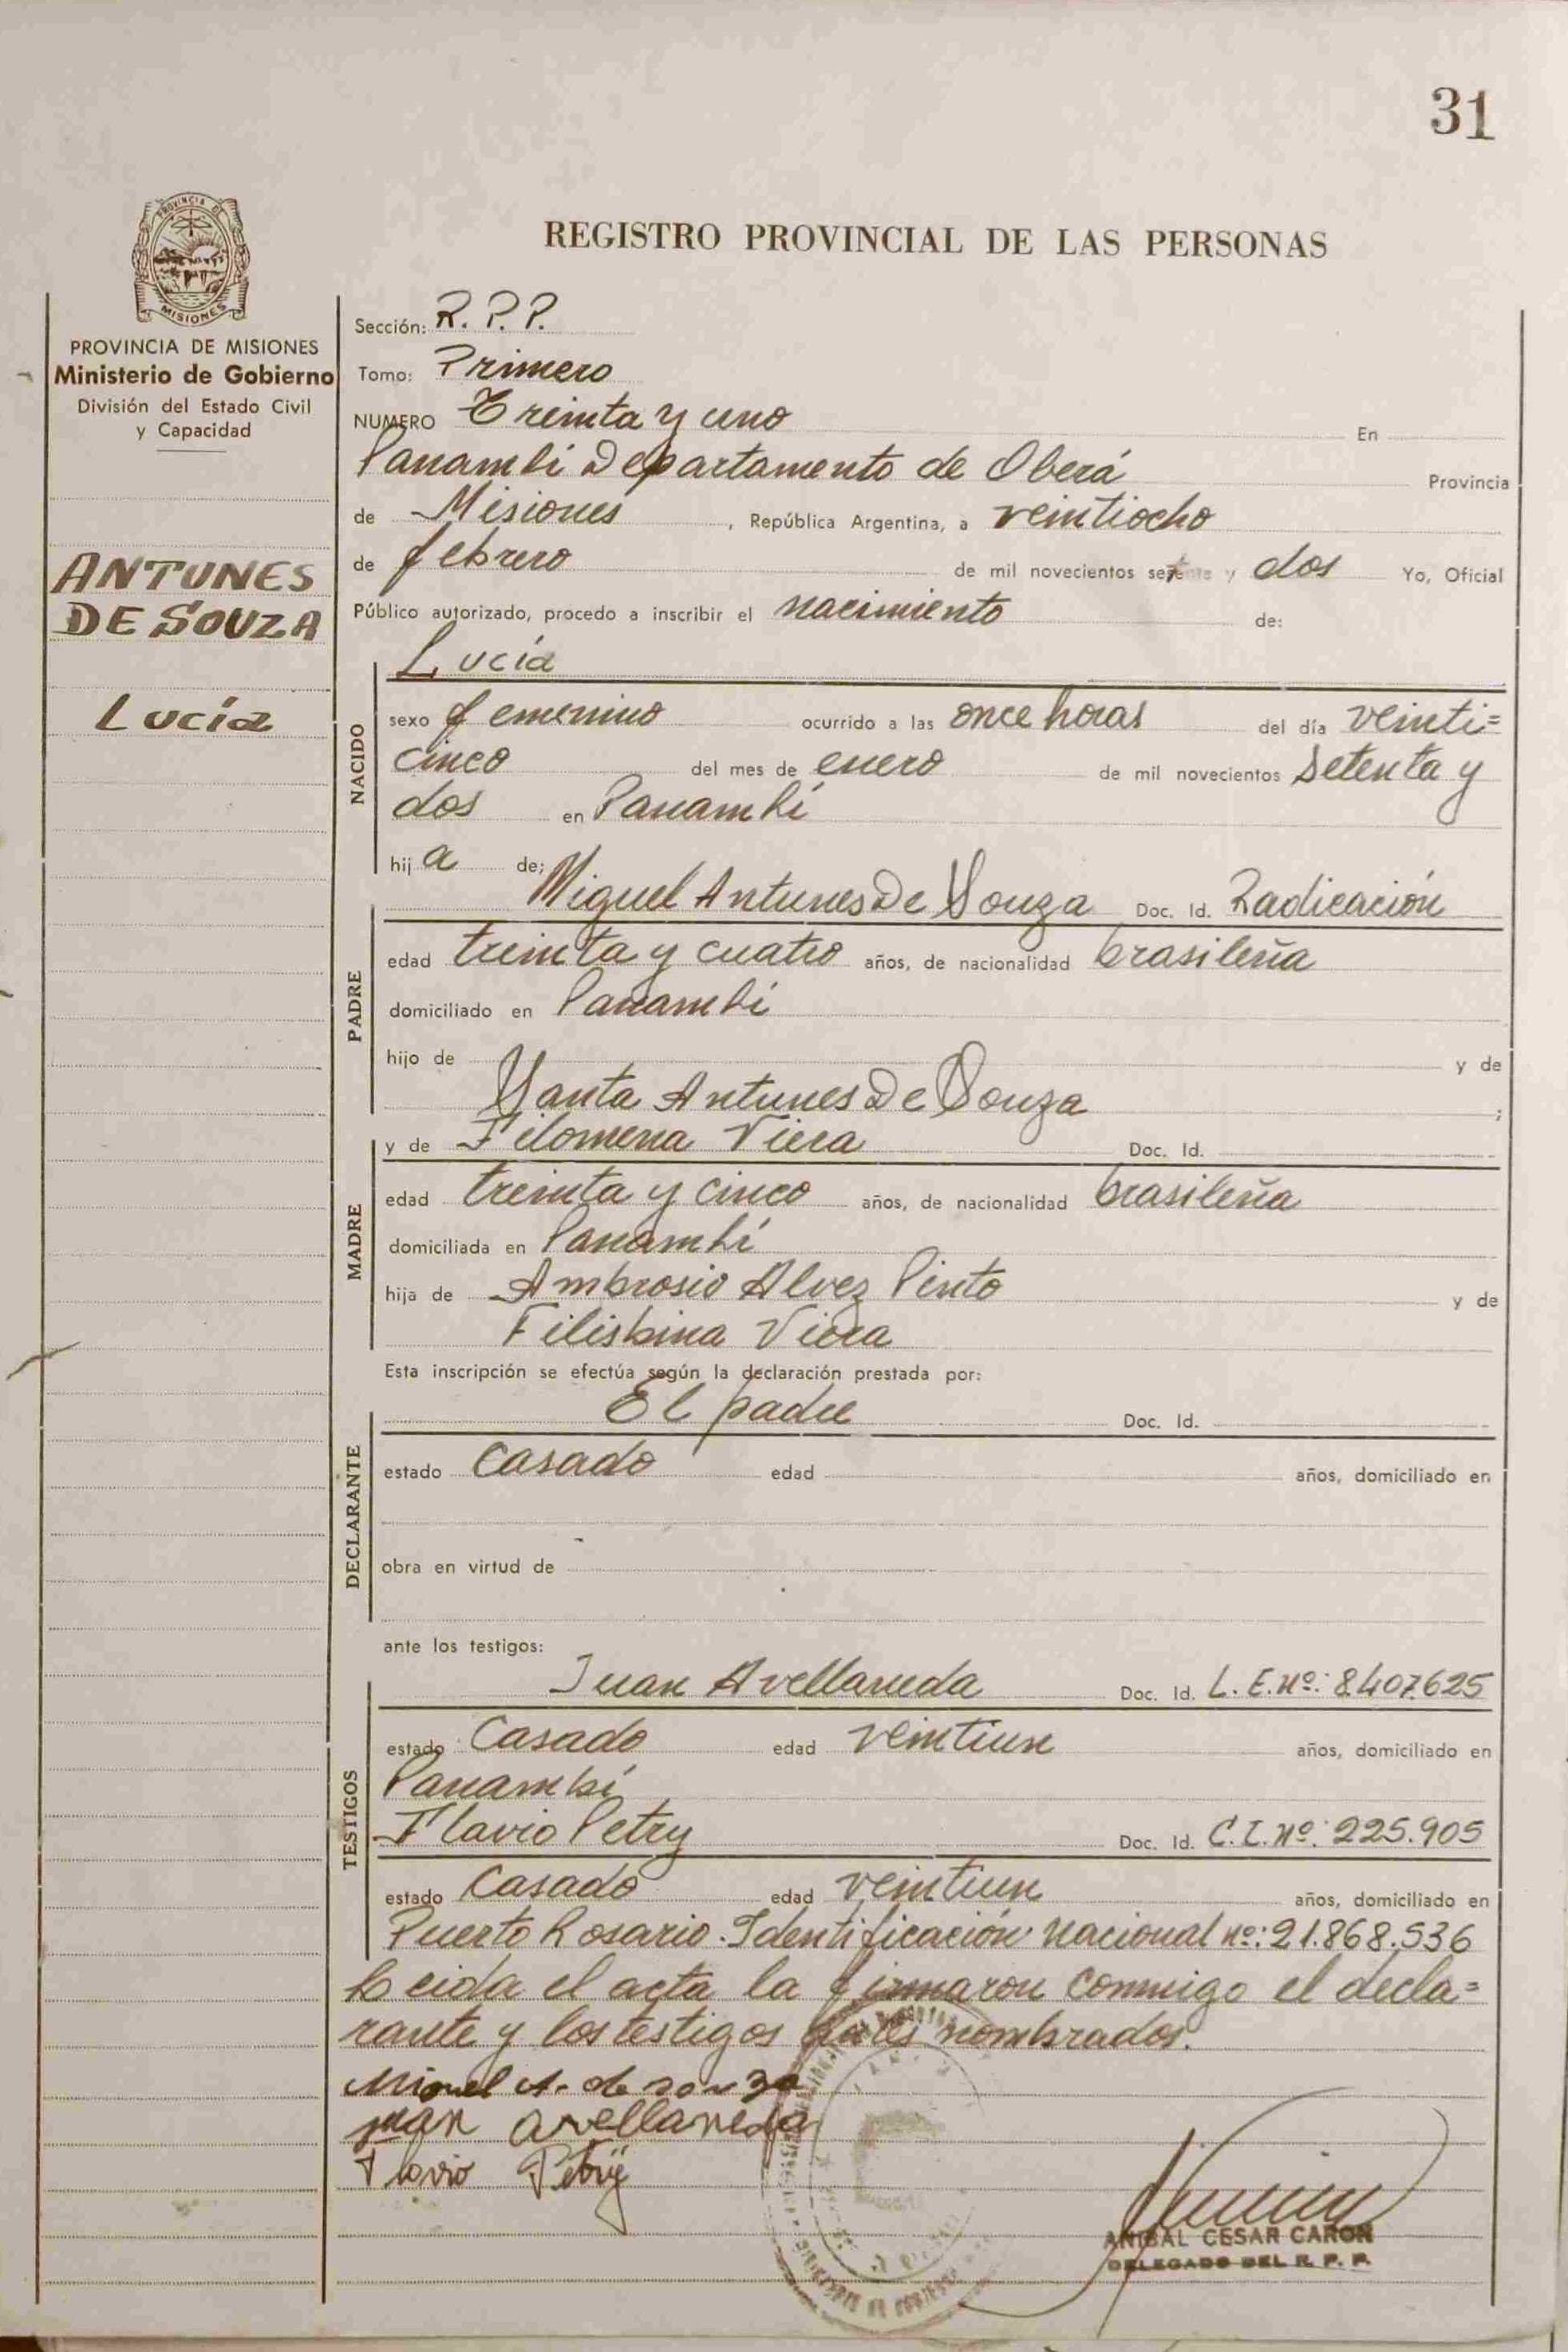 31
REGISTRO PROVINCIAL DE LAS PERSONAS
PROVINCIA DE
MISIONES
PROVINCIA DE MISIONES
Ministerio de Gobierno
División del Estado Civil
y Capacidad
ANTUNES
DE SOUZA
Lucía
Sección: R. P. P.
Tomo: Primero
NUMERO Treinta y uno En
Panambí Departamento de Oberá Provincia
de Misiones, República Argentina, a veintiocho
de febrero de mil novecientos setenta y dos Yo, Oficial
Público autorizado, procedo a inscribir el nacimiento de:
Lucía
NACIDO
sexo femenino ocurrido a las once horas del día veinti=
cinco del mes de enero de mil novecientos Setenta y
dos en Panambí
hija de;
Miguel Antunes De Souza Doc. Id. Radicación
PADRE
edad treinta y cuatro años, de nacionalidad brasileña
domiciliado en Panambí
hijo de y de
Santa Antunes De Souza ;
y de Filomena Viera Doc. Id.
MADRE
edad treinta y cinco años, de nacionalidad brasileña
domiciliada en Panambí
hija de Ambrosio Alvez Pinto y de
Filisbina Viera
Esta inscripción se efectúa según la declaración prestada por:
El padre Doc. Id.
DECLARANTE
estado Casado edad años, domiciliado en
obra en virtud de
ante los testigos:
Juan Avellaneda Doc. Id. L. E. Nº: 8.407.625
TESTIGOS
estado Casado edad veintiun años, domiciliado en
Panambí
Flavio Petry Doc. Id. C. I. Nº: 225.905
estado Casado edad veintiun años, domiciliado en
Puerto Rosario. Identificación Nacional nº: 21.868.536
Leida el acta la firmaron conmigo el decla=
rante y los testigos nombrados.
Miguel A. de souza
juan avellaneda
Flavio Petry
ANIBAL CESAR CARON
DELEGADO DEL R. P. P.